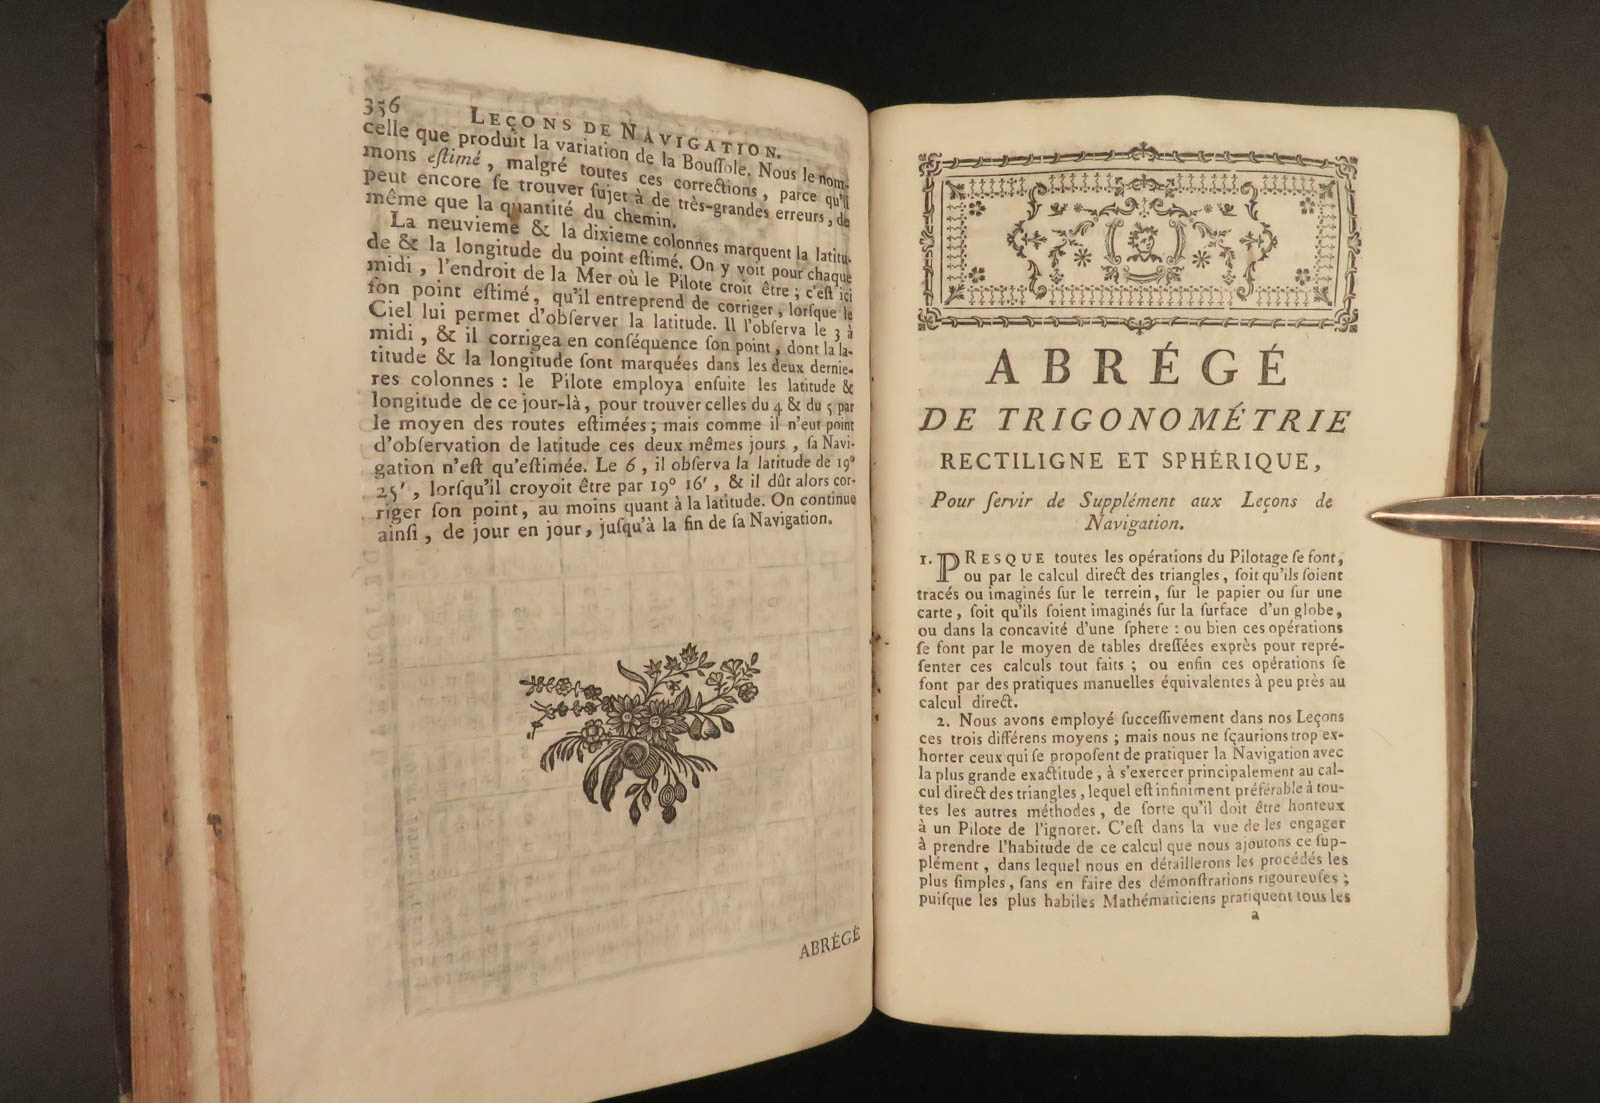 356
LEÇONS DE NAVIGATION.
celle que produit la variation de la Bouſſole. Nous le nom-
mons eſtimé, malgré toutes ces corrections, parce qu'il
peut encore ſe trouver ſujet à de très-grandes erreurs, de
même que la quantité du chemin.
La neuvieme & la dixieme colonnes marquent la latitu-
de & la longitude du point eſtimé. On y voit pour chaque
midi, l'endroit de la Mer où le Pilote croit être; c'eſt ici
ſon point eſtimé, qu'il entreprend de corriger, lorſque le
Ciel lui permet d'obſerver la latitude. Il l'obſerva le 3 à
midi, & il corrigea en conſéquence ſon point, dont la la-
titude & la longitude ſont marquées dans les deux dernie-
res colonnes : le Pilote employa enſuite les latitude &
longitude de ce jour-là, pour trouver celles du 4 & du 5 par
le moyen des routes eſtimées; mais comme il n'eut point
d'obſervation de latitude ces deux mêmes jours, ſa Navi-
gation n'eſt qu'eſtimée. Le 6, il obſerva la latitude de 19°
25′, lorſqu'il croyoit être par 19° 16′, & il dût alors cor-
riger ſon point, au moins quant à la latitude. On continue
ainſi, de jour en jour, juſqu'à la fin de ſa Navigation.
ABRÉGÉ
ABRÉGÉ
DE TRIGONOMÉTRIE
RECTILIGNE ET SPHÉRIQUE,
Pour ſervir de Supplément aux Leçons de
Navigation.
1. PRESQUE toutes les opérations du Pilotage ſe font,
ou par le calcul direct des triangles, ſoit qu'ils ſoient
tracés ou imaginés ſur le terrein, ſur le papier ou ſur une
carte, ſoit qu'ils ſoient imaginés ſur la ſurface d'un globe,
ou dans la concavité d'une ſphere : ou bien ces opérations
ſe font par le moyen de tables dreſſées exprès pour repré-
ſenter ces calculs tout faits ; ou enfin ces opérations ſe
font par des pratiques manuelles équivalentes à peu près au
calcul direct.
2. Nous avons employé ſucceſſivement dans nos Leçons
ces trois différens moyens ; mais nous ne ſçaurions trop ex-
horter ceux qui ſe propoſent de pratiquer la Navigation avec
la plus grande exactitude, à s'exercer principalement au cal-
cul direct des triangles, lequel eſt infiniment préférable à tou-
tes les autres méthodes, de ſorte qu'il doit être honteux
à un Pilote de l'ignorer. C'eſt dans la vue de les engager
à prendre l'habitude de ce calcul que nous ajoutons ce ſup-
plément, dans lequel nous en détaillerons les procédés les
plus ſimples, ſans en faire des démonſtrations rigoureuſes ;
puiſque les plus habiles Mathématiciens pratiquent tous les
a